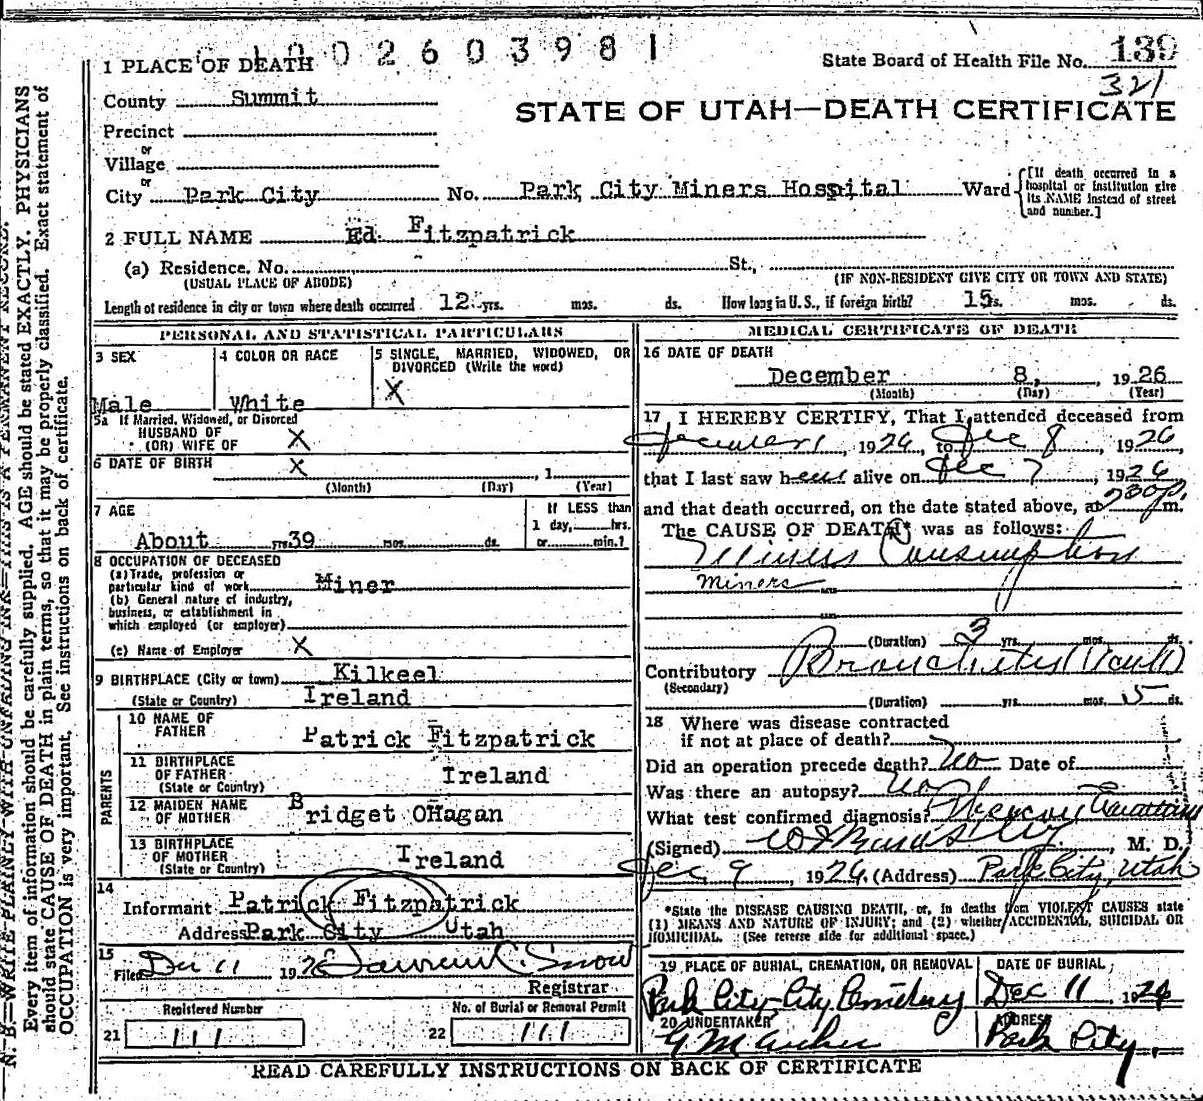 1002603981
1 PLACE OF DEATH
State Board of Health File No. 139
321
County Summit
STATE OF UTAH—DEATH CERTIFICATE
Precinct
or
Village
or
City Park City No. Park City Miners Hospital Ward [If death occurred in a hospital or institution give its NAME instead of street and number.]
2 FULL NAME Ed Fitzpatrick
(a) Residence. No. St.,
(USUAL PLACE OF ABODE) (IF NON-RESIDENT GIVE CITY OR TOWN AND STATE)
Length of residence in city or town where death occurred 12 yrs. mos. ds. How long in U.S., if foreign birth? 15 s. mos. ds.
PERSONAL AND STATISTICAL PARTICULARS
3 SEX
Male
4 COLOR OR RACE
White
5 SINGLE, MARRIED, WIDOWED, OR
DIVORCED (Write the word)
X
5a If Married, Widowed, or Divorced
HUSBAND OF
(OR) WIFE OF X
6 DATE OF BIRTH X , 1
(Month) (Day) (Year)
7 AGE
About yrs. 39 mos. ds.
If LESS than
1 day, hrs.
or min.?
8 OCCUPATION OF DECEASED
(a) Trade, profession or
particular kind of work Miner
(b) General nature of industry,
business, or establishment in
which employed (or employer)
(c) Name of Employer X
9 BIRTHPLACE (City or town) Kilkeel
(State or Country) Ireland
PARENTS
10 NAME OF
FATHER Patrick Fitzpatrick
11 BIRTHPLACE
OF FATHER Ireland
(State or Country)
12 MAIDEN NAME
OF MOTHER Bridget OHagan
13 BIRTHPLACE
OF MOTHER Ireland
(State or Country)
14
Informant Patrick Fitzpatrick
Address Park City Utah
15
Filed Dec 11 1926 Lawrence C. Snow
Registrar
Registered Number
21 111
No. of Burial or Removal Permit
22 111
MEDICAL CERTIFICATE OF DEATH
16 DATE OF DEATH
December 8, , 1926
(Month) (Day) (Year)
17 I HEREBY CERTIFY, That I attended deceased from
December 1 , 1926, to Dec 8 1926,
that I last saw h alive on Dec 7 , 1926
and that death occurred, on the date stated above, at 730 p. m.
The CAUSE OF DEATH* was as follows:
Miners Consumption
Miners
(Duration) 3 yrs. mos. ds.
Contributory Bronchitis (Acute)
(Secondary)
(Duration) yrs. mos. 5 ds.
18 Where was disease contracted
if not at place of death?
Did an operation precede death? no Date of
Was there an autopsy? no
What test confirmed diagnosis?
(Signed) , M. D.
Dec 9 , 1926. (Address) Park City, Utah
*State the DISEASE CAUSING DEATH, or, in deaths from VIOLENT CAUSES state
(1) MEANS AND NATURE OF INJURY; and (2) whether ACCIDENTAL, SUICIDAL OR
HOMICIDAL. (See reverse side for additional space.)
19 PLACE OF BURIAL, CREMATION, OR REMOVAL
Park City City Cemetery
DATE OF BURIAL
Dec 11 1926
20 UNDERTAKER
G M Archer
ADDRESS
Park City.
READ CAREFULLY INSTRUCTIONS ON BACK OF CERTIFICATE
N. B.—WRITE PLAINLY WITH UNFADING INK—THIS IS A PERMANENT RECORD.
Every item of information should be carefully supplied. AGE should be stated EXACTLY. PHYSICIANS
should state CAUSE OF DEATH in plain terms, so that it may be properly classified. Exact statement of
OCCUPATION is very important. See instructions on back of certificate.